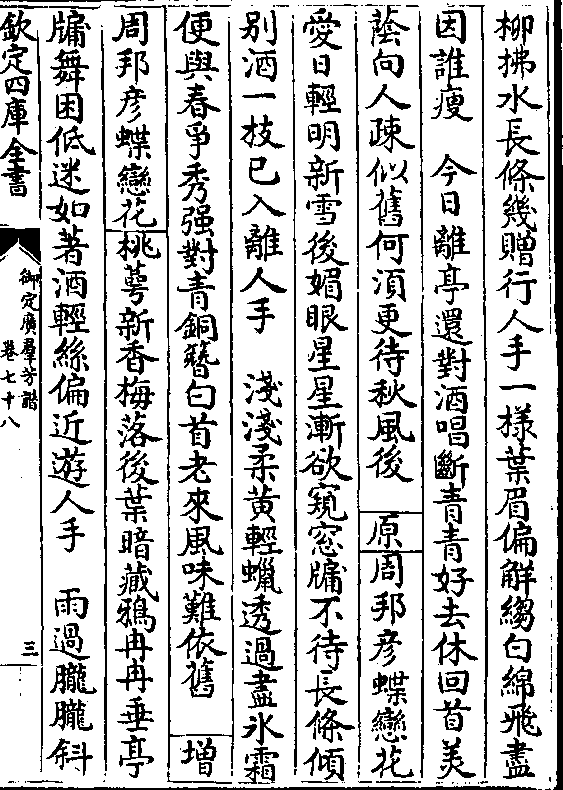 柳拂水長條幾贈行人手一様葉眉偏解縐白綿飛盡
因誰瘦　今日離亭還對酒唱斷青青好去休回首美
蔭向人疎似舊何須更待秋風後　原周邦彦蝶戀花
愛日輕明新雪後媚眼星星漸欲窺窓牖不待長條傾
别酒一枝已入離人手　淺淺柔黃輕蠟透過盡氷霜
便與春爭秀强對青銅簪白首老來風味難依舊　增
周邦彦蝶戀花桃蕚新香梅落後葉暗藏鴉冉冉垂亭
牖舞困低迷如著酒輕絲偏近遊人手　雨過朧朧斜
欽定四庫全書
御定廣羣芳譜
卷七十八
三